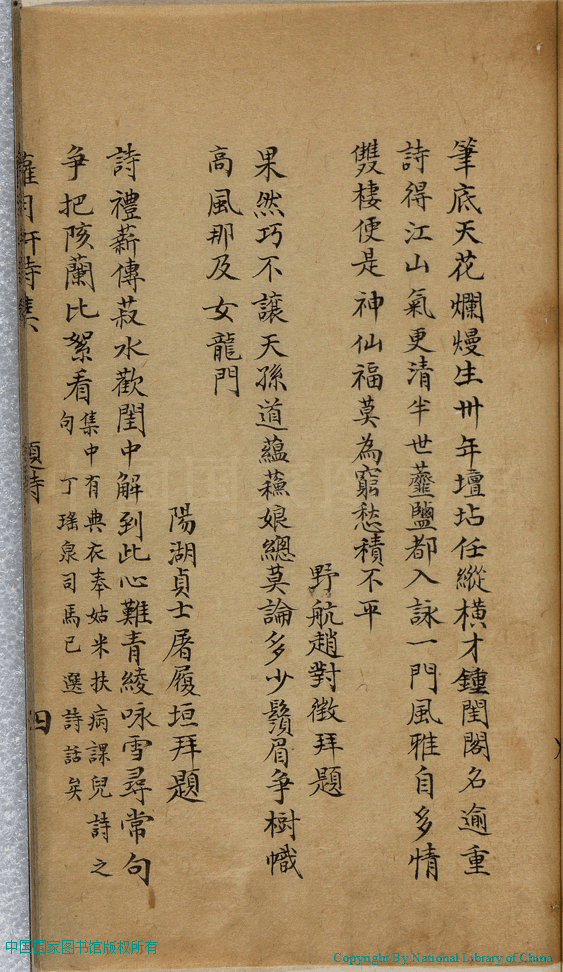 筆底天花爛熳生卅年壇坫任縱橫才鍾閨閣名逾重
詩得江山氣更清半世虀鹽都入詠一門風雅自多情
雙棲便是神仙福莫為窮愁積不平
野航趙對澂拜題
果然巧不讓天孫道蘊蘓娘總莫論多少鬚眉爭樹幟
高風那及女龍門
陽湖貞士屠履垣拜題
詩禮薪傳菽水歡閨中解到此心難青綾咏雪尋常句
爭把陔蘭比絮看
集中有典衣奉姑米扶病課兒詩之
句 丁瑤泉司馬已選詩話矣
題詩
四
中国国家图书馆版权所有
Copyright By National Library of China